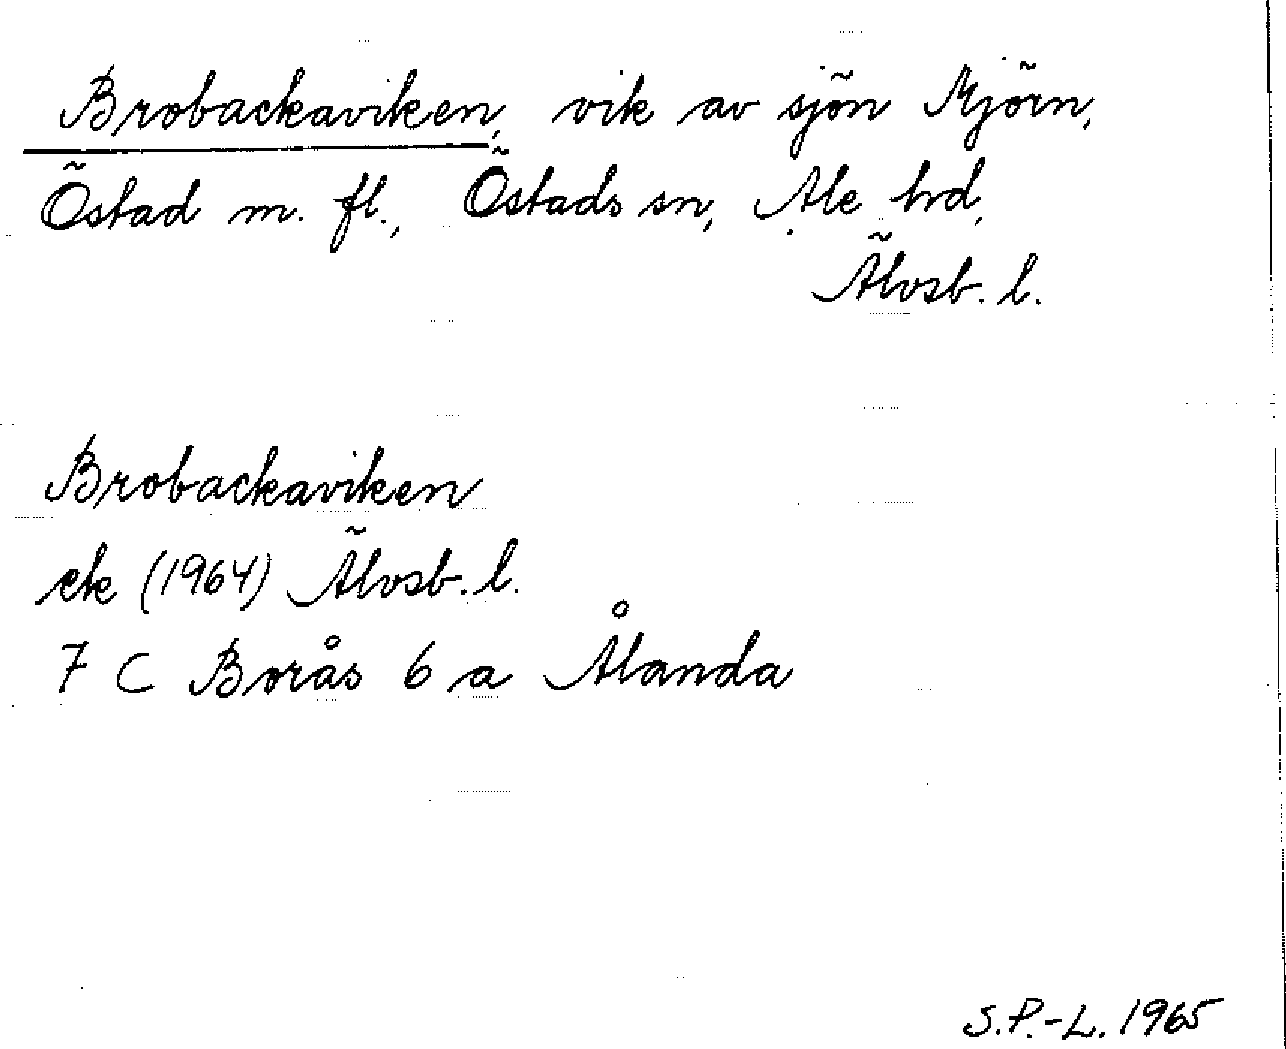 Brobackaviken, vik av sjön Mjörn,
Östad m. fl., Östads sn, Ale hd,
Älvsb. l.
Brobackaviken
ek (1964) Älvsb. l.
7 C Borås 6 a Ålanda
S.P.-L. 1965